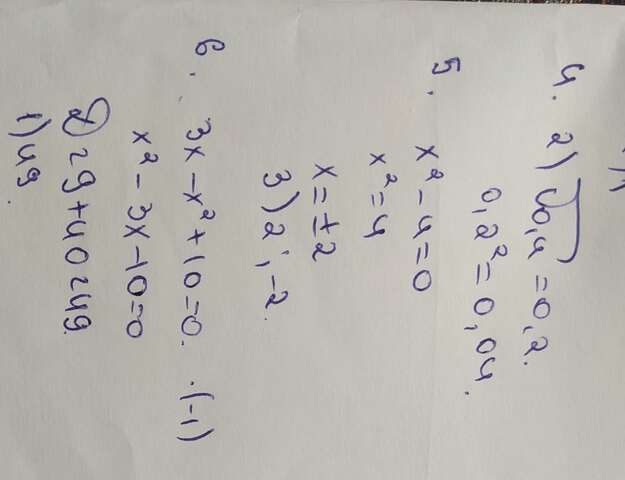 4. 2) √0,4 = 0,2.
0,2² = 0,04.
5. x² - 4 = 0
x² = 4
x = ±2
3) 2; -2.
6. 3x - x² + 10 = 0. ·(-1)
x² - 3x - 10 = 0
D = 9 + 40 = 49.
1) 49.